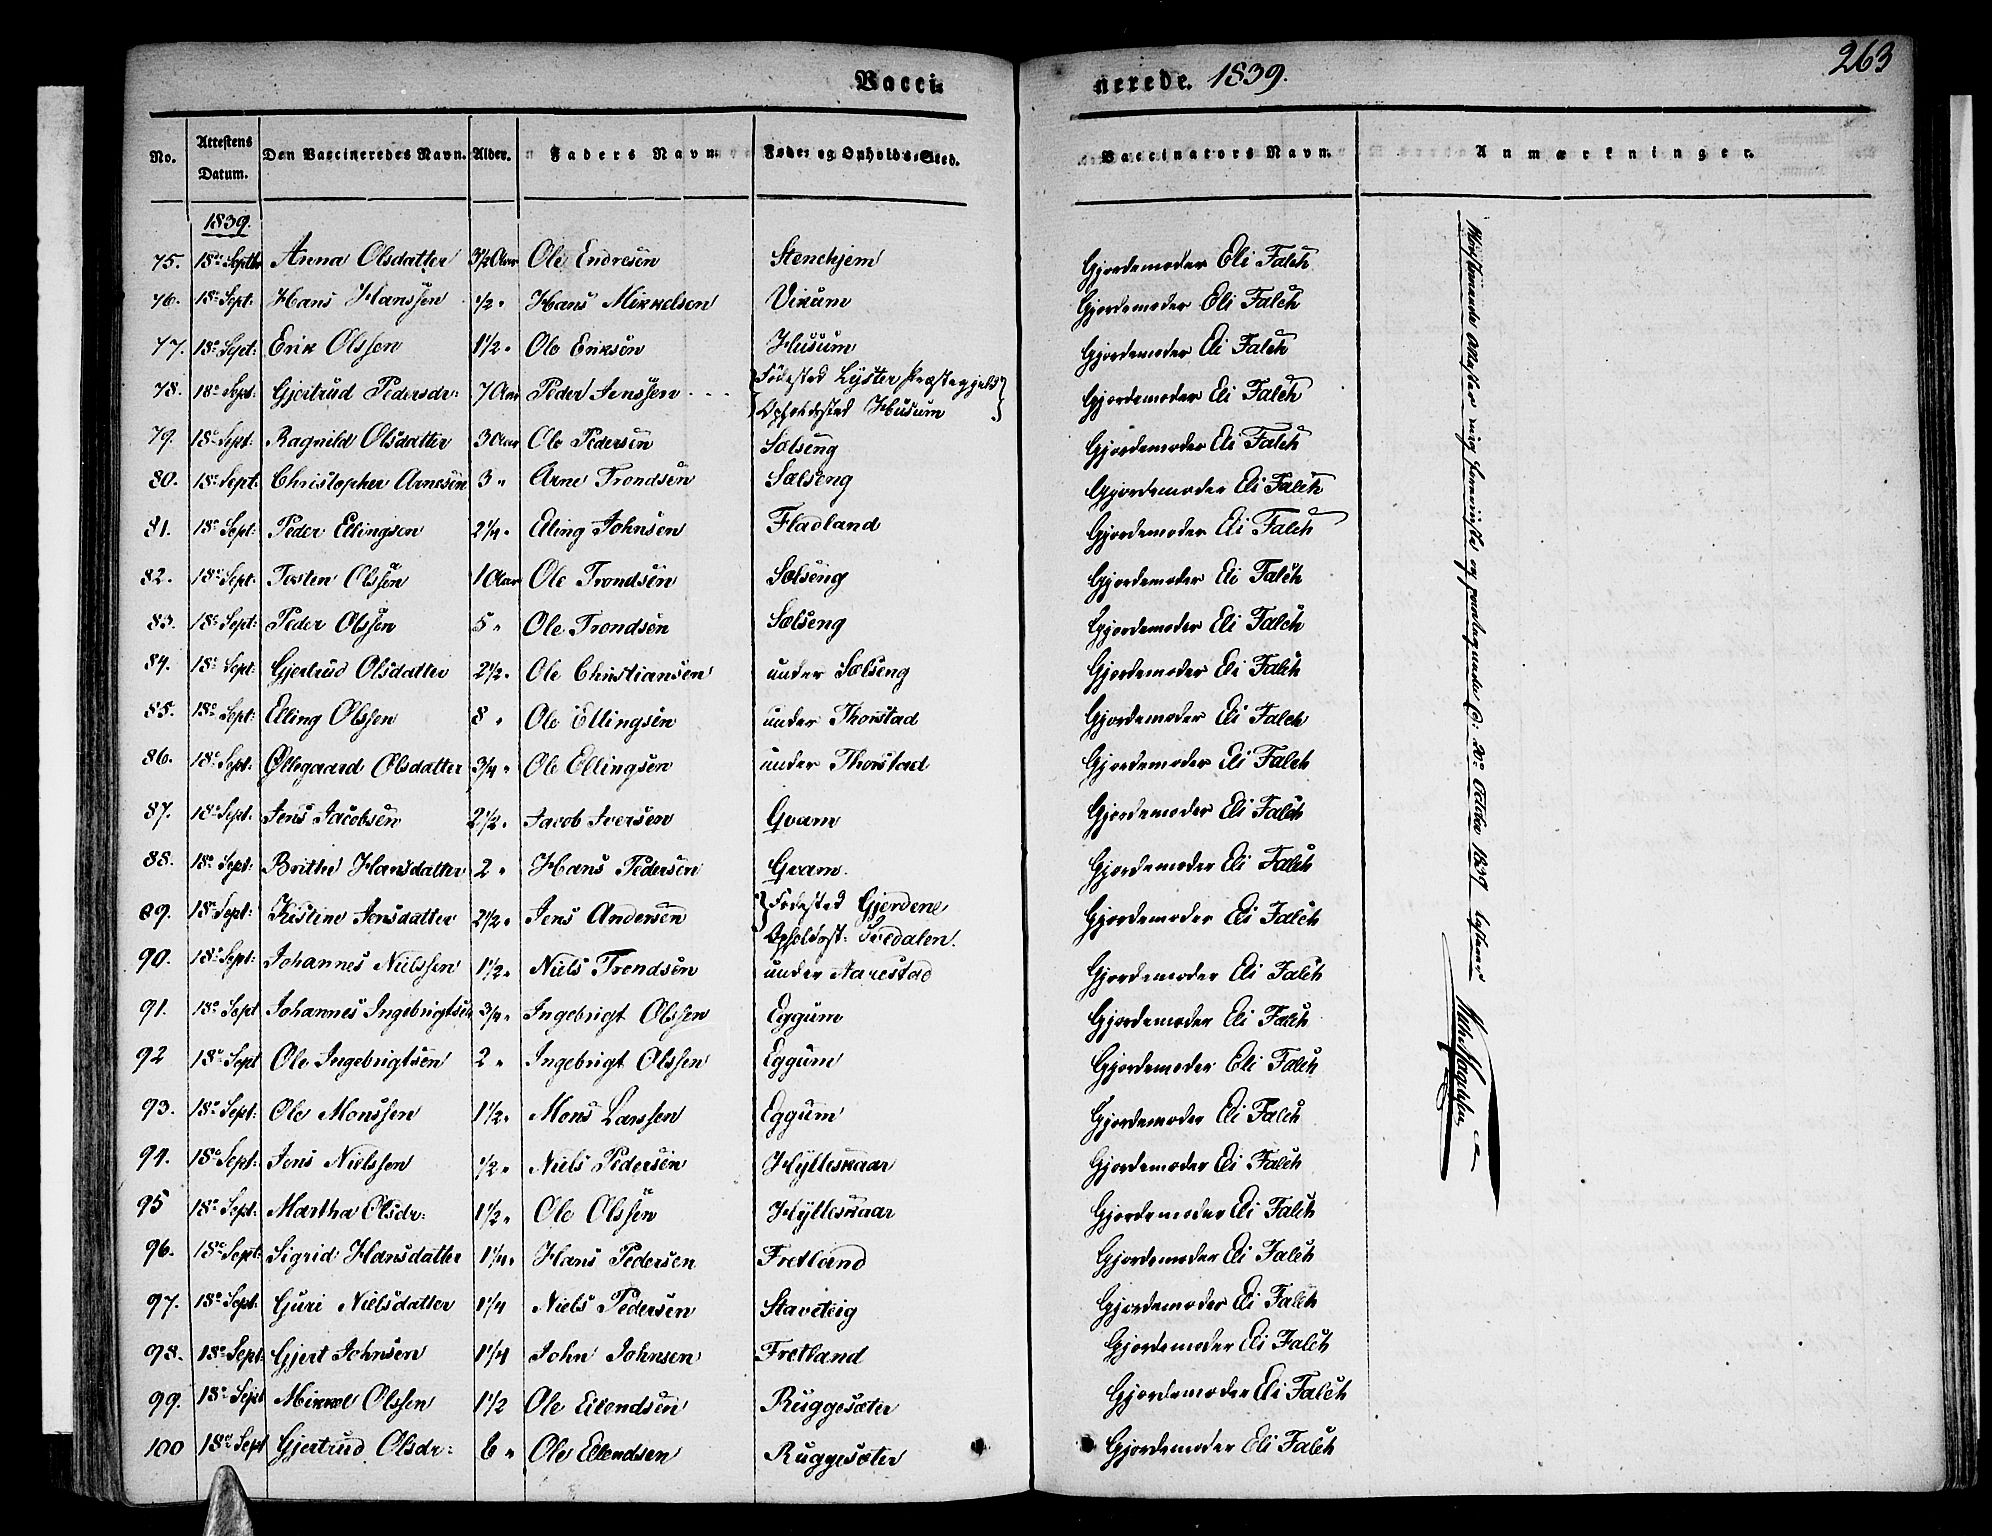 Vacci-
nerede. 1839.
263
No. Attestens Datum. Den Vaccineredes Navn. Alder. Faders Navn Føde- og Opholds-Sted. Vaccinators Navn. Anmærkninger.
1839.
75. 18de Septbr Anna Olsdatter 3½ Aar Ole Endresen Stenehjem Gjordemoder Eli Falch
76. 18de Sept: Hans Hanssen ½ " Hans Mikkelsen Vikum Gjordemoder Eli Falch
77. 18de Sept: Erik Olssen 1½ " Ole Eriksen Husum Gjordemoder Eli Falch
78. 18de Sept: Gjertrud Pedersdr: 7 Aar Peder Jenssen Fødested Lyster Præstegjeld Gjordemoder Eli Falch
Opholdssted Husum
79. 18de Sept: Ragnild Olsdatter 3 Aar Ole Pedersen Sælseng Gjordemoder Eli Falch
80. 18de Sept: Christopher Arnesen 3 " Arne Trondsen Sælseng Gjordemoder Eli Falch
81. 18de Sept: Peder Ellingsen 2¼ " Elling Johnsen Fladland Gjordemoder Eli Falch
82. 18de Sept: Tosten Olssen 1 Aar Ole Trondsen Sælseng Gjordemoder Eli Falch
83. 18de Sept: Peder Olssen 5 " Ole Trondsen Sælseng Gjordemoder Eli Falch
84. 18de Sept: Gjertrud Olsdatter 2½ " Ole Christiansen under Sælseng Gjordemoder Eli Falch
85. 18de Sept: Elling Olssen 8 " Ole Ellingsen under Thorstad Gjordemoder Eli Falch
86. 18de Sept: Øllegaard Olsdatter 3/4 " Ole Ellingsen under Thorstad Gjordemoder Eli Falch
87. 18de Sept: Jens Jacobsen 2½ " Jacob Iversen Qvam Gjordemoder Eli Falch
88. 18de Sept: Brithe Hansdatter 2 " Hans Pedersen Qvam. Gjordemoder Eli Falch
89. 18de Sept: Kistine Jensdatter 2½ " Jens Andersen Fødested Gjerdene Gjordemoder Eli Falch
Opholdsst:
90. 18de Sept: Johannes Nielssen 1½ " Niels Trondsen under Aarestad Gjordemoder Eli Falch
91. 18de Sept Johannes Ingebrigtsen 3/4 " Ingebrigt Olssen Eggum Gjordemoder Eli Falch
92 18de Sept Ole Ingebrigtsen 2 " Ingebrigt Olssen Eggum Gjordemoder Eli Falch
93. 18de Sept: Ole Monssen 1½ " Mons Larssen Eggum Gjordemoder Eli Falch
94. 18de Sept: Jens Nielssen ½ " Niels Pedersen Hylleskaar Gjordemoder Eli Falch
95 18de Sept: Martha Olsdr: 1½ " Ole Olssen Hylleskaar Gjordemoder Eli Falch
96. 18de Sept: Sigrid Hansdatter 1¼ " Hans Pedersen Fretland Gjordemoder Eli Falch
97. 18de Sept: Guri Nielsdatter 1¼ Niels Pedersen Staveteig Gjordemoder Eli Falch
98. 18de Sept: Gjert Johnsen 1¼ John Johnsen Fretland Gjordemoder Eli Falch
99. 18de Sept Mikkel Olssen 1½ Ole Eilendsen Ruggesæter Gjordemoder Eli Falch
100 18de Sept Gjertrud Olsdr: 6 " Ole Ellendsen Ruggesæter Gjordemoder Eli Falch
Attester mig foreviiste og 20de October 1839